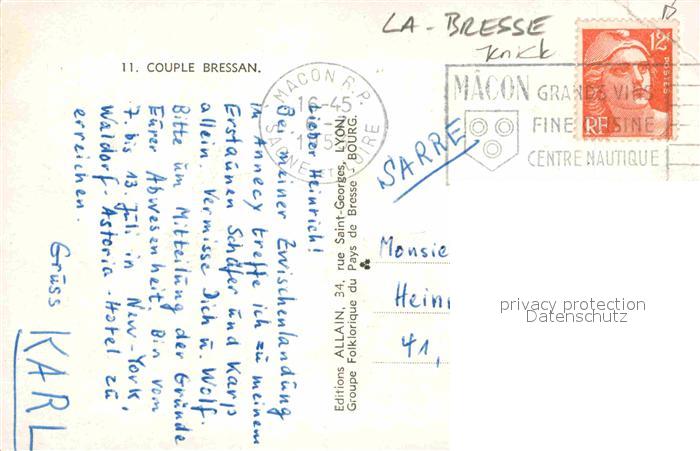 LA-BRESSE
Knick
11. COUPLE BRESSAN.
MACON R.P.
16-45
SAONE ET LOIRE
MÂCON
GRANDS VINS
FINE CUISINE
CENTRE NAUTIQUE
12F
POSTES
RF
SARRE
Lieber Heinrich!
Bei meiner Zwischenlandung
in Annecy treffe ich zu meinem
Erstaunen Schäfer und Karp
allein. Vermisse Dich u. Wolf.
Bitte um Mitteilung der Gründe
Eurer Abwesenheit. Bin vom
7 bis 13. Juli in New-York,
Waldorf-Astoria-Hotel zu
erreichen.
Grüss
KARL
Editions ALLAIN, 34, rue Saint-Georges, LYON.
Groupe Folklorique du Pays de Bresse - BOURG.
Monsie
Hein
41,
privacy protection
Datenschutz